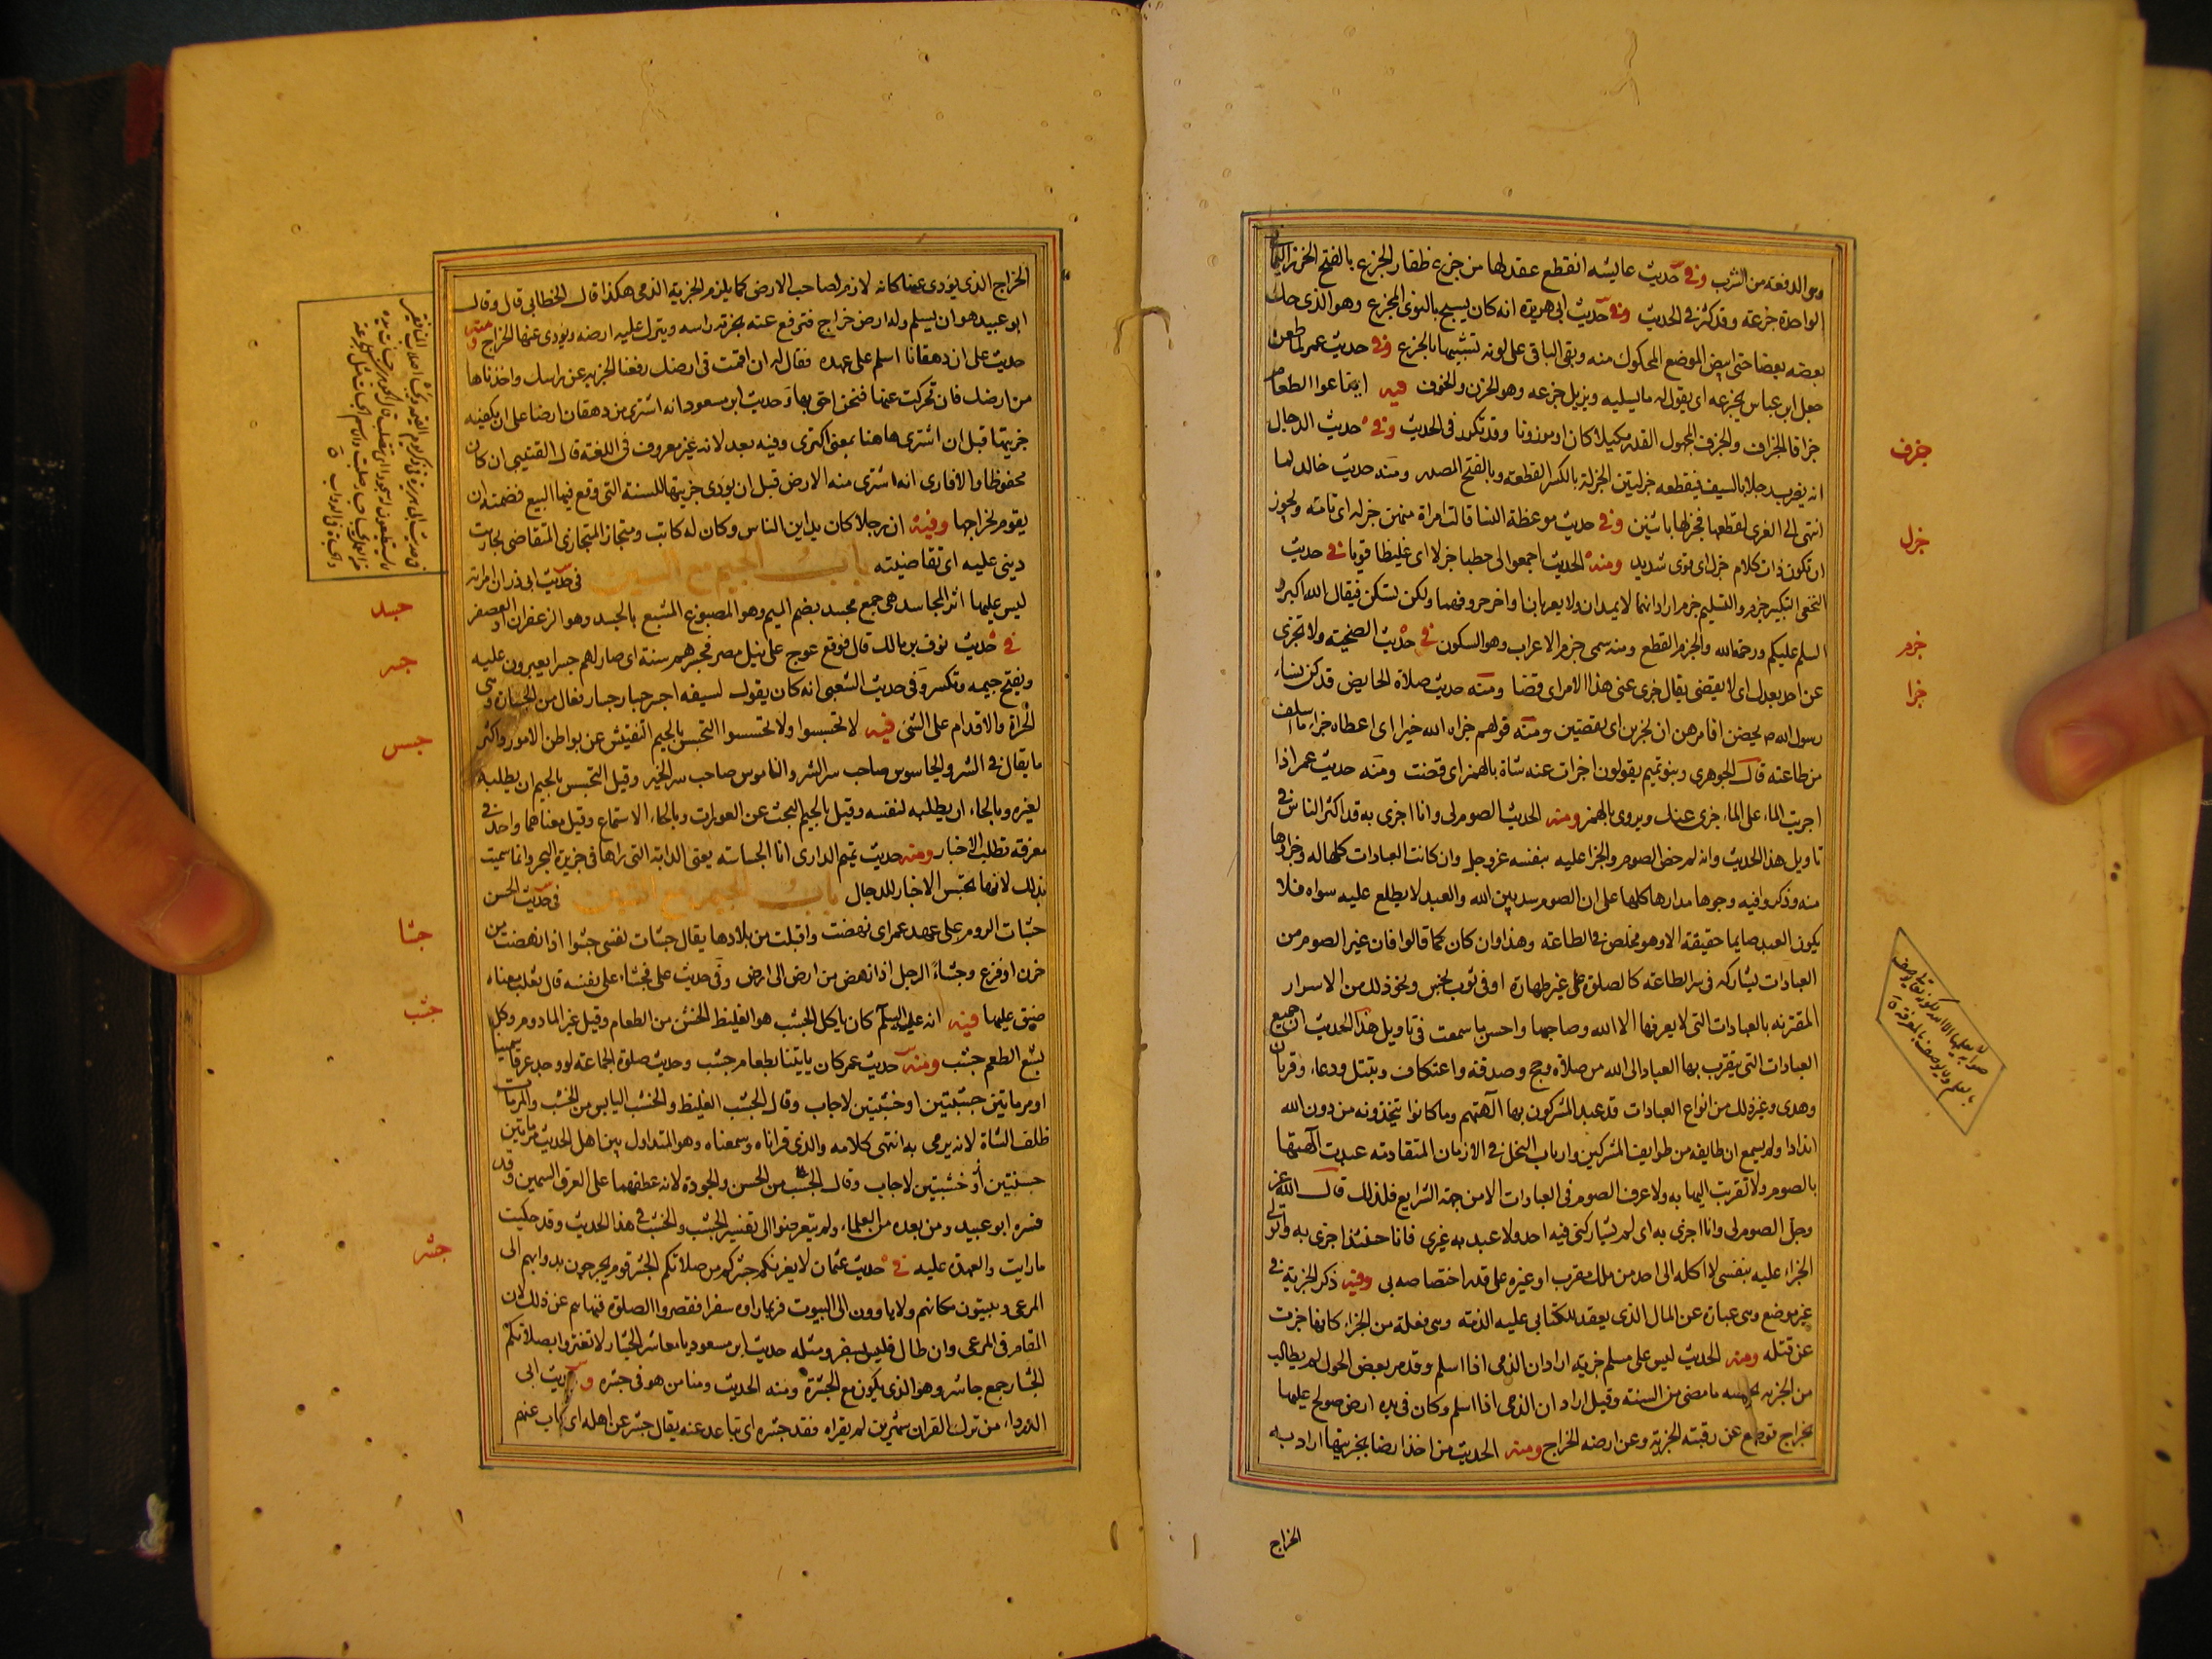 وهو الدفعة من الشرب وفى حديث عايشه انقطع عقد لها من جزع ظفار الجزع بالفتح الخرز اليمانى
الواحدة جزعة وقد كثر فى الحديث وفى حديث ابى هريرة انه كان يسبح بالنوى المجزع وهو الذى حك
بعضه بعضا حتى ابيض الموضع المحكوك منه وبقى الباقى على لونه تشبيها بالجزع وفى حديث عمر لما طعن
جعل ابن عباس يجزعه اى يقول له ما يسليه ويزيل جزعه وهو الحزن والخوف فيه ابتاعوا الطعام
جزف
جزافا الجزاف والجزف المجهول القدر مكيلا كان او موزونا وقد تكرر فى الحديث وفى حديث الدجال
انه يضرب رجلا بالسيف فيقطعه جزلتين الجزلة بالكسر القطعة وبالفتح المصدر ومنه حديث خالد لما
جزل
انتهى الى العزى ليقطعها فجزلها باثنين وفى حديث موعظة النسا قالت امراة منهن جزله اى تامة ويجوز
ان تكون ذات كلام جزل اى قوى شديد ومنه الحديث اجمعوا لى حطبا جزلا اى غليظا قويا فى حديث
النخعى التكبير جزم والتسليم جزم اراد انهما لا يمدان ولا يعرب اواخر حروفهما ولكن يسكن فيقال الله اكبر و
جزم
السلم عليكم ورحمة الله والجزم القطع ومنه سمى جزم الاعراب وهو السكون فى حديث الضحية ولا تجزى
جزا
عن احد بعدك اى لا يقضى يقال جزى عنى هذا الامر اى قضا ومنه حديث صلاة الحايض قد كن نساء
رسول الله ص يحضن افامرهن ان يجزين اى يقضين ومنه قولهم جزاه الله خيرا اى اعطاه جزاء ما اسلف
من طاعته قال الجوهرى وبنو تميم يقولون اجزات عنه شاة بالهمز اى قضت ومنه حديث عمر اذا
اجريت الماء على الماء جزى عنك ويروى بالهمز ومنه الحديث الصوم لى وانا اجزى به قد اكثر الناس فى
تاويل هذا الحديث وانه لم خص الصوم والجزا عليه بنفسه عز وجل وان كانت العبادات كلها له وجزاوها
منه وذكروا فيه وجوها مدارها كلها على ان الصوم سر بين الله والعبد لا يطلع عليه سواه فلا
يكون العبد صايما حقيقة الا وهو مخلص فى الطاعة وهذا وان كان كما قالوا فان غير الصوم من
العبادات يشاركه فى سر الطاعة كالصلوة على غير طهارة او فى ثوب نجس ونحو ذلك من الاسرار
المقترنه بالعبادات التى لا يعرفها الا الله وصاحبها واحسن ما سمعت فى تاويل هذا الحديث ان جميع
العبادات التى يتقرب بها العباد الى الله من صلاة وحج وصدقة واعتكاف وتبتل ودعاء وقربان
وهدى وغير ذلك من انواع العبادات قد عبد المشركون بها الهتهم وما كانوا يتخذونه من دون الله
اندادا ولم يسمع ان طايفه من طوايف المشركين وارباب النحل فى الازمان المتقادمة عبدت الهتها
بالصوم ولا تقربت اليها به ولا عرف الصوم فى العبادات الا من جهة الشرايع فلذلك قال الله عز
وجل الصوم لى وانا اجزى به اى لم يشاركنى فيه احد ولا عبد به غيرى فانا حينئذ اجزى به واتولى
الجزاء عليه بنفسى لا اكله الى احد من ملك مقرب او غيره على قدر اختصاصه بى وفيه ذكر الجزية فى
غير موضع وهى عبارة عن المال الذى يعقد للكتابى عليه الذمة وهى فعلة من الجزاء كانها جزت
عن قتله ومنه الحديث ليس على مسلم جزية اراد ان الذمى اذا اسلم وقد مر بعض الحول لم يطالب
من الجزيه بحصه ما مضى من السنة وقيل اراد ان الذمى اذا اسلم وكان فى يده ارض صولح عليها
بخراج توضع عن رقبته الجزية وعن ارضه الخراج ومنه الحديث من اخذ ارضا بجزيتها اراد به
الخراج
الخراج الذى يؤدى عنها كانه لازم لصاحب الارض كما يلزم الجزية الذمى هكذا قال الخطابى قال وقال
ابو عبيد هو ان يسلم وله ارض خراج فترفع عنه جزية راسه ويترك عليه ارضه ويودى عنها الخراج ومنه
حديث على ان دهقانا اسلم على عهده فقال له ان اقمت فى ارضك رفعنا الجزيه عن راسك واخذناها
من ارضك فان تحركت عنها فنحن احق بها وحديث ابن مسعود انه اشترى من دهقان ارضا على ان يكفيه
جزيتها قيل ان اشترى هاهنا بمعنى اكترى وفيه بعد لانه غير معروف فى اللغة قال القتيبى ان كان
محفوظا والا فارى انه اشترى منه الارض قبل ان يودى جزيتها للسنة التى وقع فيها البيع فضمنه ان
يقوم بخراجها وفيه ان رجلا كان يداين الناس وكان له كاتب ومتجاز المتجازى المتقاضى تجازيت
دينى عليه اى تقاضيته باب الجيم مع السين فى حديث ابى ذر ان امراته
جسد
ليس عليها اثر المجاسد هى جمع مجسد بضم الميم وهو المصبوغ المشبع بالجسد وهو الزعفران او العصفر
جسر
فى حديث نوف بن مالك قال فوقع عوج على نيل مصر فجسرهم سنة اى صار لهم جسرا يعبرون عليه
وبفتح جيمه وتكسر وفى حديث الشعبى انه كان يقول لسيفه اجسر جسار جسار فعال من الجسارة وهى
جسس
الجراة والاقدام على الشئ فيه لا تجسسوا ولا تحسسوا التجسس بالجيم التفتيش عن بواطن الامور واكثر
ما يقال فى الشر والجاسوس صاحب سر الشر والناموس صاحب سر الخير وقيل التجسس بالجيم ان يطلبه
لغيره وبالحاء ان يطلبه لنفسه وقيل بالجيم البحث عن العورات وبالحاء الاستماع وقيل معناهما واحد فى
معرفة تطلب الاخبار ومنه حديث تميم الدارى انا الجساسه يعنى الدابة التى راها فى جزيرة البحر وانما سميت
بذلك لانها تجس الاخبار للدجال باب الجيم مع الشين فى حديث الحسن
جشا
جشات الروم على عهد عمر اى نهضت واقبلت من بلادها يقال جشات نفسى جشوا اذا نهضت من
حزن او فزع وجشا الرجل اذا نهض من ارض الى ارض وفى حديث على فجشاء على نفسه قال ثعلب معناه
جشب
ضيق عليها فيه انه عليه السلم كان ياكل الجشب هو الغليظ الخشن من الطعام وقيل غير المادوم وكل
بشع الطعم جشب ومنه حديث عمر كان ياتينا بطعام جشب وحديث صلوة الجماعة لو وجد عرقا سمينا
او مرماتين جشبتين او خشبتين لاجاب وقال الجشب الغليظ والخشب اليابس من الخشب والمرماة
ظلف الشاة لانه يرمى به انتهى كلامه والذى قراناه وسمعناه وهو المتداول بين اهل الحديث مرماتين
حسنتين او خشبتين لاجاب وقال الحسن من الحسن والجودة لانه عطفهما على العرق السمين وقد
فسره ابو عبيد ومن بعده من العلماء ولم يتعرضوا الى تفسير الجشب والخشب فى هذا الحديث وقد حكيت
جشر
ما رايت والعهدة عليه فى حديث عثمان لا يغرنكم جشركم من صلاتكم الجشر قوم يخرجون بدوابهم الى
المرعى ويبيتون مكانهم ولا ياوون الى البيوت فربما راوه سفرا فقصروا الصلوة فنهاهم عن ذلك لان
المقام فى المرعى وان طال فليس بسفر ومثله حديث ابن مسعود يا معاشر الجشار لا تغتروا بصلاتكم
الجشار جمع جاشر وهو الذى يكون مع الجشرة ومنه الحديث ومنا من هو فى جشره وحديث ابى
الدرداء من ترك القران شهرين لم يقراه فقد جشره اى تباعد عنه يقال جشر عن اهله اى غاب عنهم